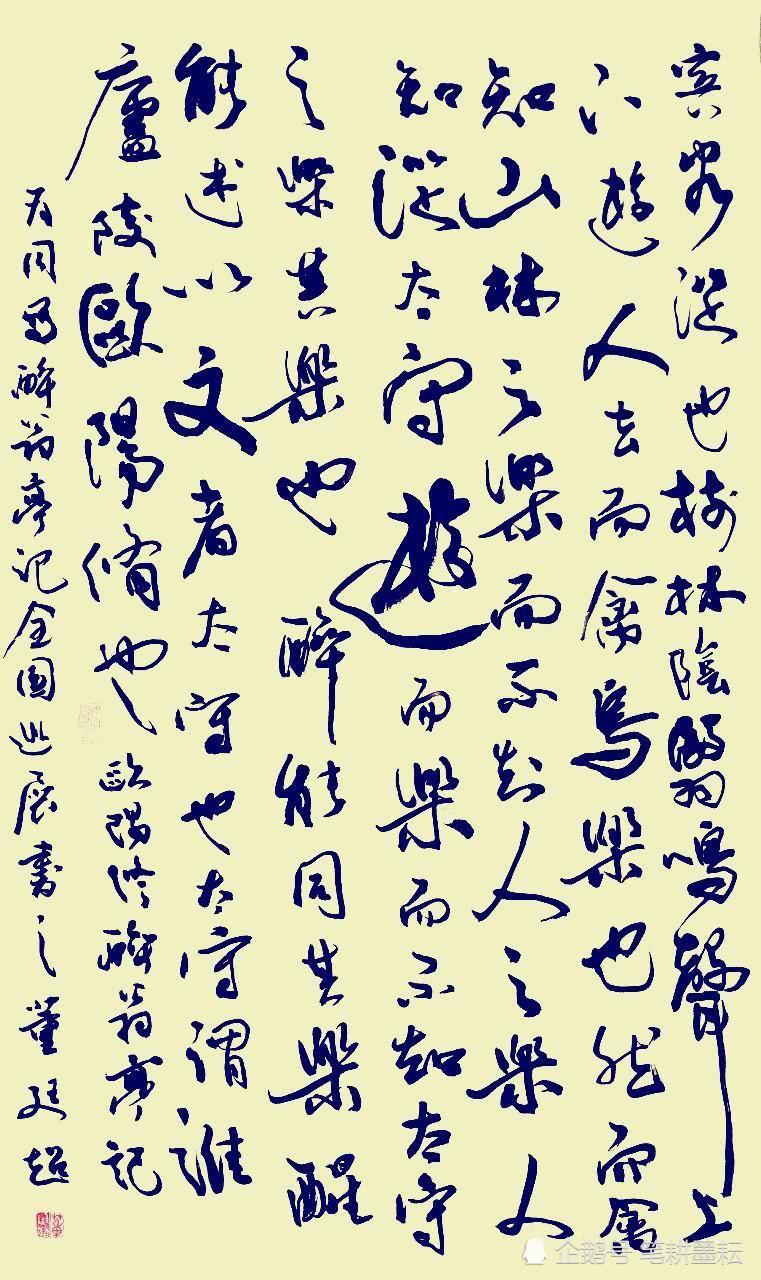 賓客從也樹林陰翳鳴聲上
下遊人去而禽鳥樂也然而禽
知山林之樂而不知人之樂人
知從太守遊而樂而不知太守
之樂其樂也醉能同其樂醒
能述以文者太守也太守謂誰
廬陵歐陽脩也歐陽修醉翁亭記
为同写醉翁亭記全國巡展書之董廷超
企鹅号 笔耕墨耘